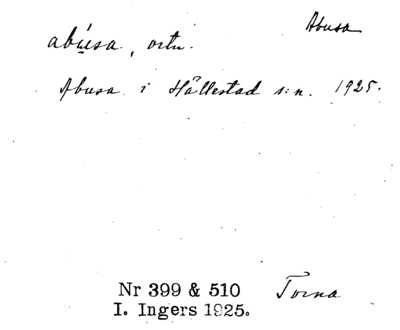 Abusa
abúsa, ortn.
Abusa i Hällestad s:n. 1925.
Nr 399 & 510 Torna
I. Ingers 1925.